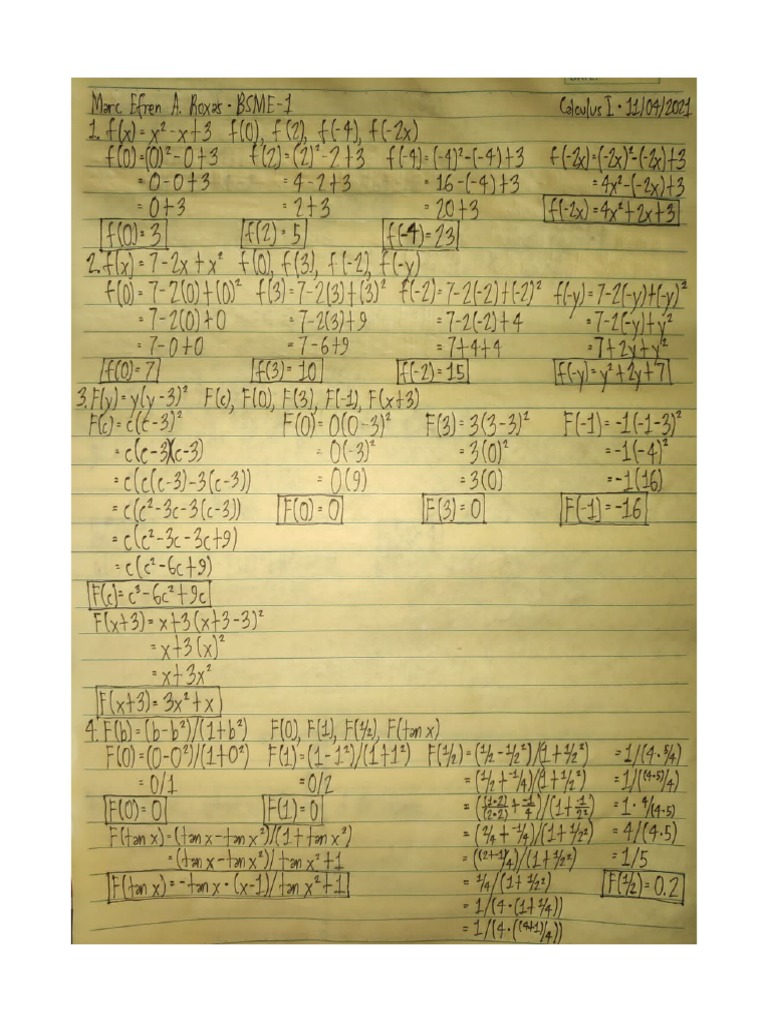 Marc Efren A. Roxas • BSME-1 Calculus I • 11/04/2021
1. f(x)= x²-x+3 f(0), f(2), f(-4), f(-2x)
f(0)=(0)²-0+3 f(2)=(2)²-2+3 f(-4)=(-4)²-(-4)+3 f(-2x)=(-2x)²-(-2x)+3
= 0-0+3 = 4-2+3 = 16-(-4)+3 = 4x²-(-2x)+3
= 0+3 = 2+3 = 20+3 f(-2x)=4x²+2x+3
f(0)=3 f(2)=5 f(-4)=23
2. f(x)= 7-2x+x² f(0), f(3), f(-2), f(-y)
f(0)=7-2(0)+(0)² f(3)=7-2(3)+(3)² f(-2)=7-2(-2)+(-2)² f(-y)=7-2(-y)+(-y)²
= 7-2(0)+0 = 7-2(3)+9 = 7-2(-2)+4 = 7-2(-y)+y²
= 7-0+0 = 7-6+9 = 7+4+4 = 7+2y+y²
f(0)=7 f(3)=10 f(-2)=15 f(-y)=y²+2y+7
3. F(y)= y(y-3)² F(c), F(0), F(3), F(-1), F(x+3)
F(c)= c(c-3)² F(0)=0(0-3)² F(3)=3(3-3)² F(-1)=-1(-1-3)²
= c(c-3)(c-3) = 0(-3)² = 3(0)² = -1(-4)²
= c(c(c-3)-3(c-3)) = 0(9) = 3(0) = -1(16)
= c(c²-3c-3(c-3)) F(0)=0 F(3)=0 F(-1)=-16
= c(c²-3c-3c+9)
= c(c²-6c+9)
F(c)= c³-6c²+9c
F(x+3)= x+3(x+3-3)²
= x+3(x)²
= x+3x²
F(x+3)= 3x²+x
4. F(b)=(b-b²)/(1+b²) F(0), F(1), F(½), F(tan x)
F(0)=(0-0²)/(1+0²) F(1)=(1-1²)/(1+1²) F(½)=(½-½²)/(1+½²) = 1/(4·5/4)
= 0/1 = 0/2 = (½+-¼)/(1+½²) = 1/((4·5)/4)
F(0)=0 F(1)=0 = ((1·2)/(2·2)+-1/4)/(1+1/2²) = 1·4/(4·5)
F(tan x)=(tan x-tan x²)/(1+tan x²) = (2/4+-1/4)/(1+½²) = 4/(4·5)
= (tan x-tan x²)/tan x²+1 = ((2+-1)/4)/(1+½²) = 1/5
F(tan x)=-tan x·(x-1)/tan x²+1 = ¼/(1+½²) F(½)=0.2
= 1/(4·(1+¼))
= 1/(4·((4+1)/4))